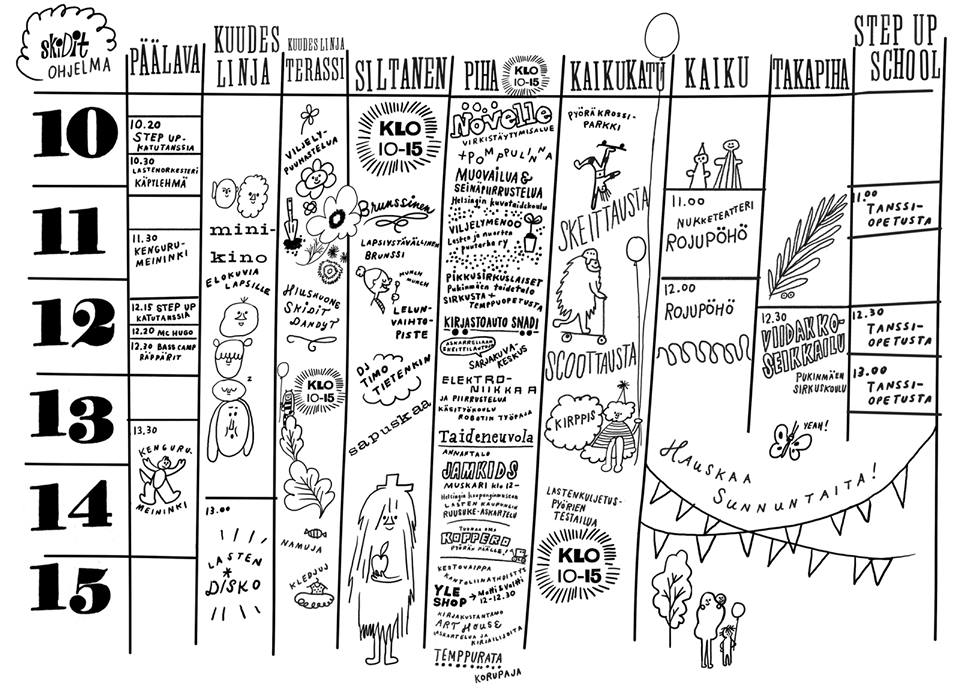 SKiDiT
OHJELMA
PÄÄLAVA
KUUDES
LINJA
KUUDES LINJA
TERASSI
SILTANEN
PIHA
KLO
10-15
KAIKUKATU
KAIKU
TAKAPIHA
STEP UP
SCHOOL
10
11
12
13
14
15
10.20
STEP UP-
KATUTANSSIA
10.30
LASTENORKESTERI
KÄPILEHMÄ
11.30
KENGURU-
MEININKI
12.15 STEP UP
KATUTANSSIA
12.20 MC HUGO
12.30 BASS CAMP
RÄPPÄRIT
13.30
KENGURU-
MEININKI
mini-
kino
ELOKUVIA
LAPSILLE
13.00
LASTEN
DISKO
VILJELY-
PUUHASTELUA
HIUSHUONE
SKIDIT
DANDYT
KLO
10-15
NAMUJA
KLEDJUJ
KLO
10-15
Brunssinen
LAPSIYSTÄVÄLLINEN
BRUNSSI
MUMUM
MUMUM
LELUN-
VAIHTO-
PISTE
DJ
TIMO
TIETENKIN
sapuskaa
Növelle
VIRKISTÄYTYMISALUE
+POMPPULINNA
MUOVAILUA &
SEINÄPIIRRUSTELUA
Helsingin kuvataidekoulu
VILJELYMENOO
Lasten ja nuorten
puutarha ry
PIKKUSIRKUSLAISET
Pukinmäen taidetalo
SIRKUSTA +
TEMPPUOPETUSTA
KIRJASTOAUTO SNADI
ASKARRELLAAN
SKEITTILAUTOJA
SARJAKUVA-
KESKUS
ELEKTRO-
NIIKKAA
JA PIIRRUSTELUA
KÄSITYÖKOULU
ROBOTIN TYÖPAJA
Taideneuvola
ANNANTALO
JAMKIDS
MUSKARI klo 12-
Helsingin kaupunginmuseon
LASTEN KAUPUNGIN
RUUSUKE-ASKARTELU
TUUNAA OMA
KOPPERO
PYÖRÄN PÄÄLLE!
KESTOVAIPPA
KANTOLIINAYHDISTYS
YLE
SHOP → Motti & Voltti
12-12.30
KIRJAKUSTANTAMO
ART HOUSE
ASKARTELUA JA
KIRJAILIJOITA
TEMPPURATA
KORUPAJA
PYÖRÄKROSSI-
PARKKI
SKEITTAUSTA
SCOOTTAUSTA
KIRPPIS
LASTENKULJETUS-
PYÖRIEN
TESTAILUA
KLO
10-15
11.00
NUKKETEATTERI
ROJUPÖHÖ
12.00
ROJUPÖHÖ
12.30
VIIDAKKO-
SEIKKAILU
PUKINMÄEN
SIRKUSKOULU
YEAH!
11.00
TANSSI-
OPETUSTA
12.30
TANSSI-
OPETUSTA
13.00
TANSSI-
OPETUSTA
HAUSKAA
SUNNUNTAITA!